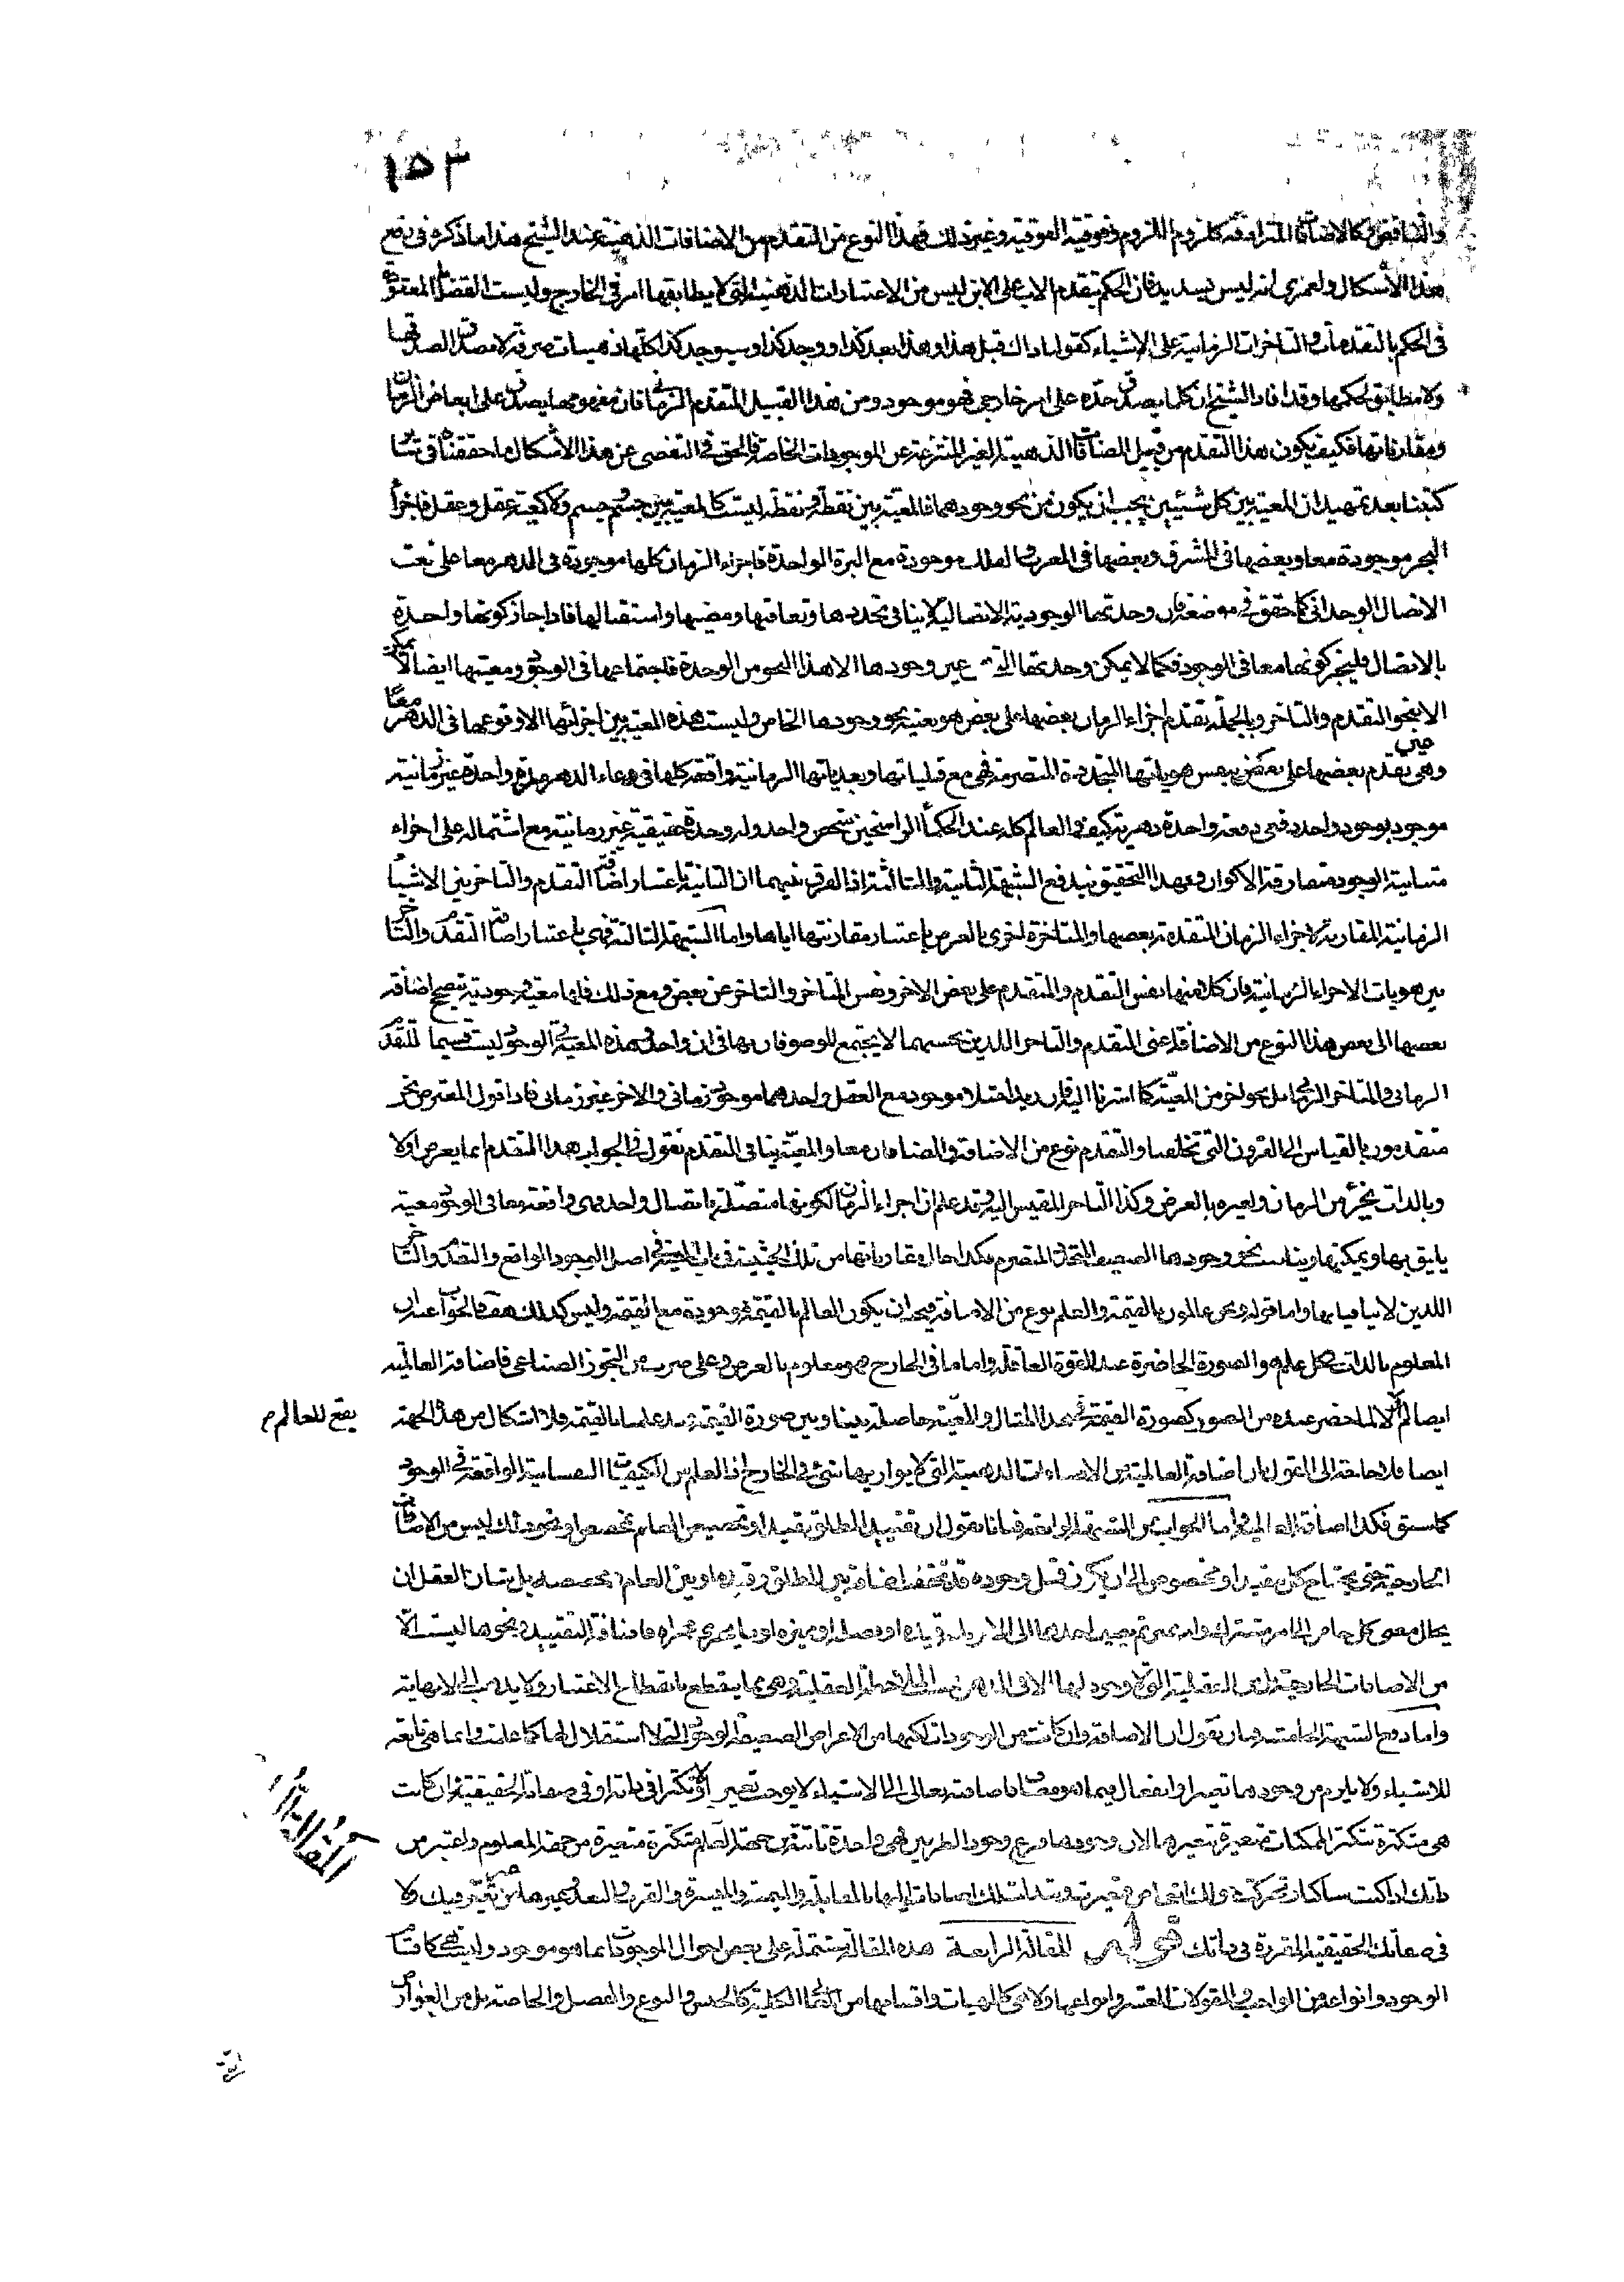 ١٥٣
والتناقض وكالاضافات المترادفة كلزوم اللزوم وفوقية الفوقية وغير ذلك فهذا النوع من التقدم من الاضافات الذهنية عند الشيخ هذا ما ذكره في دفع
هذا الاشكال ولعمري انه ليس بسديد فان الحكم بتقدم الاب على الابن ليس من الاعتبارات الذهنية التي لا يطابقها امر في الخارج وليست القضايا المعقودة
في الحكم بالتقدمات والتاخرات الزمانية على الاشياء كقولنا ذاك قبل هذا وهذا بعد كذا ووجد كذا وسيوجد كذا كلها ذهنيات صرفة لا مصداق لصدقها
ولا مطابق لحكمها وقد افاد الشيخ ان كلما يصدق حده على امر خارجي فهو موجود ومن هذا القبيل المتقدم الزماني فان مفهومها يصدق على ابعاض الزمان
ومقارناتها فكيف يكون هذا التقدم من قبيل المضافات الذهنية الغير المنتزعة عن الموجودات الخاصة فالحق في التفصى عن هذا الاشكال ما حققناه في
كتبنا بعد تمهيد ان المعية بين كل شيئين يجب ان يكون من نحو وجودهما فالمعية بين نقطة ونقطة ليست كالمعية بين جسم وجسم ولا كمعية عقل وعقل فاجزاء
البحر موجودة معا وبعضها في المشرق وبعضها في المغرب والفلك موجودة مع البرة الواحدة فاجزاء الزمان كلها موجودة في الدهر معا على نعت
الاتصال الوحداني كما حقق في موضعه فان وحدتها الوجودية الاتصالية لا ينافي تجددها وتعاقبها ومضيها واستقبالها فاذا جاز كونها واحدة
بالاتصال فليجز كونها معا في الوجود فكما لا يمكن وحدتها التي عين وجودها الا هذا النحو من الوحدة فاجتماعها في الوجود ومعيتها ايضا لا يمكن
الا بنحو التقدم والتاخر وبالجملة تقدم اجزاء الزمان بعضها على بعض هو بعينه نحو وجودها الخاص وليست هذه المعية بين اجزائها الا وقوعها في الدهر معا
وهي تقدم بعضها على بعض بنفس هوياتها المتجددة المتصرمة فهي مع قبلياتها وبعدياتها الزمانية واقعة كلها في وعاء الدهر مرة واحدة غير زمانية
موجود بوجود واحد دفعة واحدة دهرية كيف والعالم كله عند الحكماء الراسخين شخص واحد وله وحدة حقيقية غير زمانية مع اشتماله على اجزاء
متباينة الوجود متفارقة الاكوان وبهذا التحقيق يندفع الشبهة الثانية والثالثة اذ الفرق بينهما ان الثانية باعتبار اضافة التقدم والتاخر بين الاشياء
الزمانية المقارنة لاجزاء الزمان المتقدمة بعضها والمتاخرة اخرى بالعرض باعتبار مقارنتها اياها واما الشبهة الثالثة فهي باعتبار اضافة التقدم والتاخر
بين هويات الاجزاء الزمانية فان كلا منها نفس التقدم والمتقدم على بعض الاخر ونفس التاخر والتاخر عن بعض ومع ذلك فلها معية وجودية تصحح اضافة
بعضها الى بعض هذا النوع من الاضافة اعني التقدم والتاخر اللذين بحسبهما لا يجتمع الموصوفان بها في ان واحد وهذه المعية الوجودية ليست قسيما للتقدم
الزماني والتاخر الزماني بل نحو اخر من المعية كما اشرنا اليه فان زيدا مثلا موجود مع العقل واحدهما موجود زماني والاخر غير زماني فاذا قول المعترض نحن
متقدمون بالقياس الى القرون التي تخلفنا والتقدم نوع من الاضافة والمضافان معا والمعية ينافي التقدم نقول في الجواب هذا التقدم انما يعرض اولا
وبالذات بجزء من الزمان ولغيره بالعرض وكذا التاخر المقيس اليه وقد علم ان اجزاء الزمان لكونها متصلة باتصال واحد فهي واقعة معا في الوجود معية
يليق بها ويمكنها ويناسب نحو وجودها الضعيف المتجدد المتصرم فكذا حال مقارناتها من تلك الحيثية في باب المعية في اصل الوجود الواقع والتقدم والتاخر
اللذين لا ينافيانها واما قوله ونحن عالمون بالقيمة والعلم نوع من الاضافة فيجب ان يكون العالم بالقيمة موجودة مع القيمة وليس كذلك هف فالجواب عنه ان
المعلوم بالذات بكل علم هو الصورة الحاضرة عند القوة العاقلة واما ما في الخارج فهو معلوم بالعرض وعلى ضرب من التجوز الصناعي فاضافة العالمية
ايضا لم يقع للعالم الا لما حضر عنده من الصور كصورة القيمة في هذا المثال والمعية حاصلة بيننا وبين صورة القيمة عند علمنا بالقيمة فلا اشكال من هذه الجهة
ايضا فلا حاجة الى القول بان اضافة العالمية من الاضافات الذهنية التي لا يوازيها شئ في الخارج اذ العلم من الكيفيات النفسانية الواقعة في الوجود
كما سبق فكذا اضافة العالمية واما الجواب عن الشبهة الرابعة فبانا نقول ان تقييد المطلق بقيد او تخصيص العام بمخصص او نحو ذلك ليس من الاضافات
الخارجية حتى يحتاج كل مقيد او مخصوص الى ان يكون قبل وجوده قد تحقق اضافة بين المطلق وقيده او بين العام ومخصصه بل شان العقل ان
يحلل معنى كل خاص الى امر مشترك وامر مميز ثم يضيف احدهما الى الاخر بانه قيده او فصله او مميزه او ما يجري مجراه فاضافة التقييد ونحوها ليست الا
من الاضافات الخارجية بل العقلية التي لا وجود لها الا في الذهن عند الملاحظة العقلية وهي مما ينقطع بانقطاع الاعتبار ولا يذهب الى لا نهاية
واما دفع الشبهة الخامسة فبان نقول ان الاضافة وان كانت من الموجودات لكنها من الاعراض الضعيفة الوجود التي لا استقلال لها كما علمت وانما هي تابعة
للاشياء ولا يلزم من وجودها تغير او انفعال فيما هو مضاف فاضافته تعالى الى الاشياء لا يوجب تغير او تكثرا في ذاته او في صفاته الحقيقية وان كانت
هي متكثرة بتكثر الممكنات متغيرة بتغيرها لان وجودها فرع وجود الطرفين فهي واحدة ثابتة من جهة العلم متكثرة متغيرة من جهة المعلوم واعتبر من
ذاتك اذا كنت ساكنا وتحركت حولك اشخاص متغيرة وتبدلت تلك اضافاتك اليها بالمقابلة واليمنة واليسرة والقرب والبعد وغيرها من غير تغير فيك ولا
في صفاتك الحقيقية المقررة في ذاتك قوله المقالة الرابعة هذه المقالة مشتملة على بعض احوال الموجود بما هو موجود وليست هي كاقسام
الوجود وانواعه من الواجب والمقولات العشر وانواعها ولا هي كالهيات واقسامها من الكليات كالجنس والنوع والفصل والخاصة بل من العوارض
يقع للعالم م
المقالة الرابعة